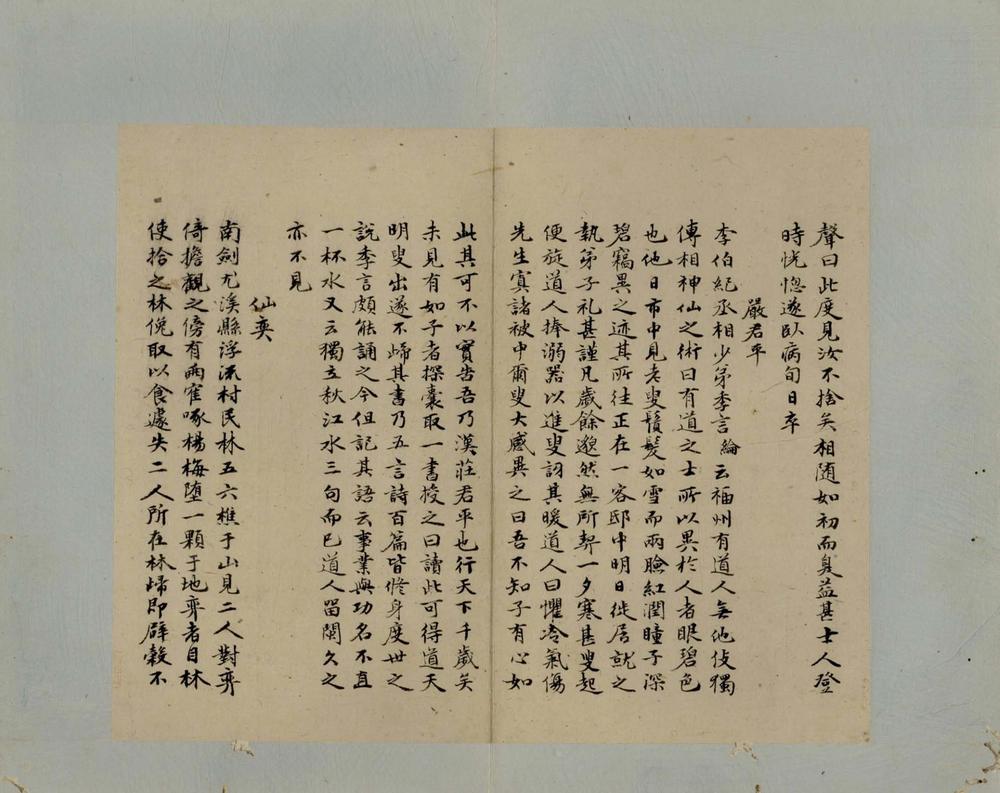 聲曰此度見汝不捨矣相随如初而臭益甚士人登
時恍惚遂臥病旬日卒
嚴君平
李伯紀丞相少弟季言綸云福州有道人無他伎獨
傳相神仙之術曰有道之士所以異於人者眼碧色
也他日市中見老叟鬚髮如雪而兩臉紅潤瞳子深
碧竊異之迹其所往正在一客邸中明日徙居就之
執弟子礼甚謹凡歲餘邈然無所契一夕寒甚叟起
便旋道人捧溺器以進叟訝其暖道人曰懼冷氣傷
先生寘諸被中爾叟大感異之曰吾不知子有心如
此其可不以實告吾乃漢莊君平也行天下千歲矣
未見有如子者探囊取一書授之曰讀此可得道天
明叟出遂不歸其書乃五言詩百篇皆修身度世之
說季言頗能誦之今但記其語云事業與功名不直
一杯水又云獨立秋江水三句而已道人留閩久之
亦不見
仙奕
南劍尤溪縣浮流村民林五六樵于山見二人對弈
倚擔觀之傍有兩隺啄楊梅墮一顆于地弈者目林
使拾之林俛取以食遽失二人所在林歸即辟穀不